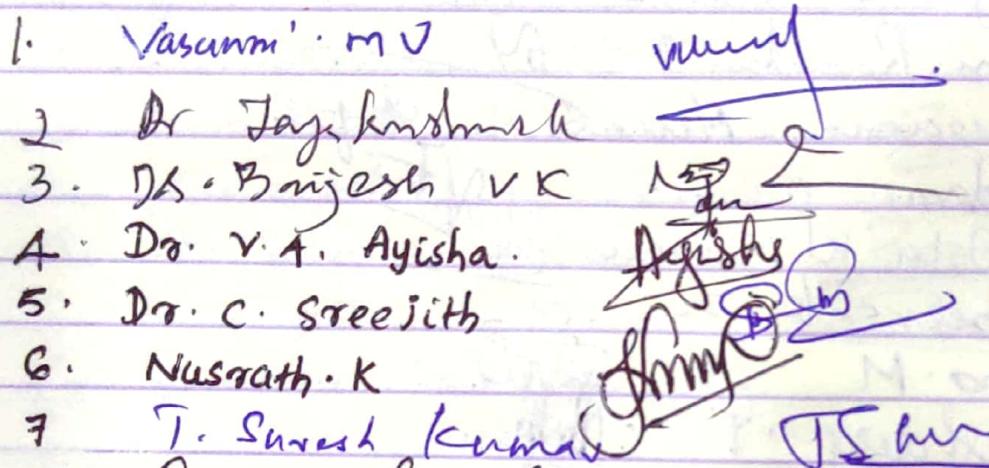 1. Vasumni. MV
2 Dr Jayakrishnak
3. Dr. Brijesh VK
4. Dr. V.A. Ayisha. Ayisha
5. Dr. C. Sreejith
6. Nusrath. K
7 T. Suresh Kumar